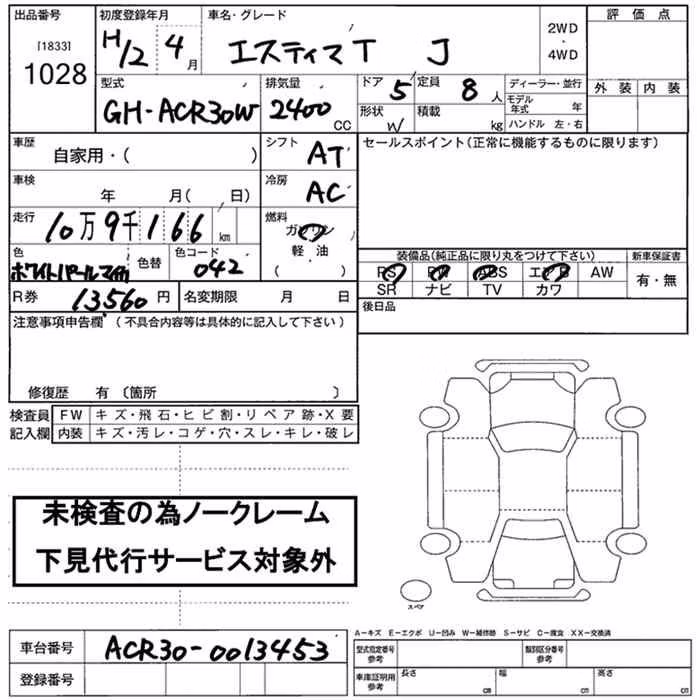 出品番号
[1833]
1028
初度登録年月
H12 4月
車名・グレード
エスティマT J
2WD
・
4WD
評価点
外装 内装
型式
GH-ACR30W
排気量
2400 CC
ドア 5
定員 8人
形状 W
積載 kg
ディーラー・並行
モデル年式 年
ハンドル 左・右
車歴
自家用・( )
シフト AT
セールスポイント(正常に機能するものに限ります)
車検
年 月( 日)
冷房 AC
走行
10万9千166km
燃料
ガソリン
軽油
( )
色
ホワイトパールマイカ
色替
色コード
042
装備品(純品に限り丸をつけて下さい)
新車保証書
PS PW ABS エアB AW
SR ナビ TV カワ
有・無
R券 13,560円
名変期限 月 日
後日品
注意事項申告欄(不具合内容等は具体的に記入して下さい)
修復歴 有〔箇所 〕
検査員記入欄
FW キズ・飛石・ヒビ割・リペア跡・X要
内装 キズ・汚レ・コゲ・穴・スレ・キレ・破レ
未検査の為ノークレーム
下見代行サービス対象外
スペア
A―キズ E―エクボ U―凹み W―補修跡 S―サビ C―腐食 XX―交換済
車台番号 ACR30-0013453
登録番号
型式指定番号
参考
類別区分番号
参考
車庫証明用
参考
長さ cm
幅 cm
高さ cm